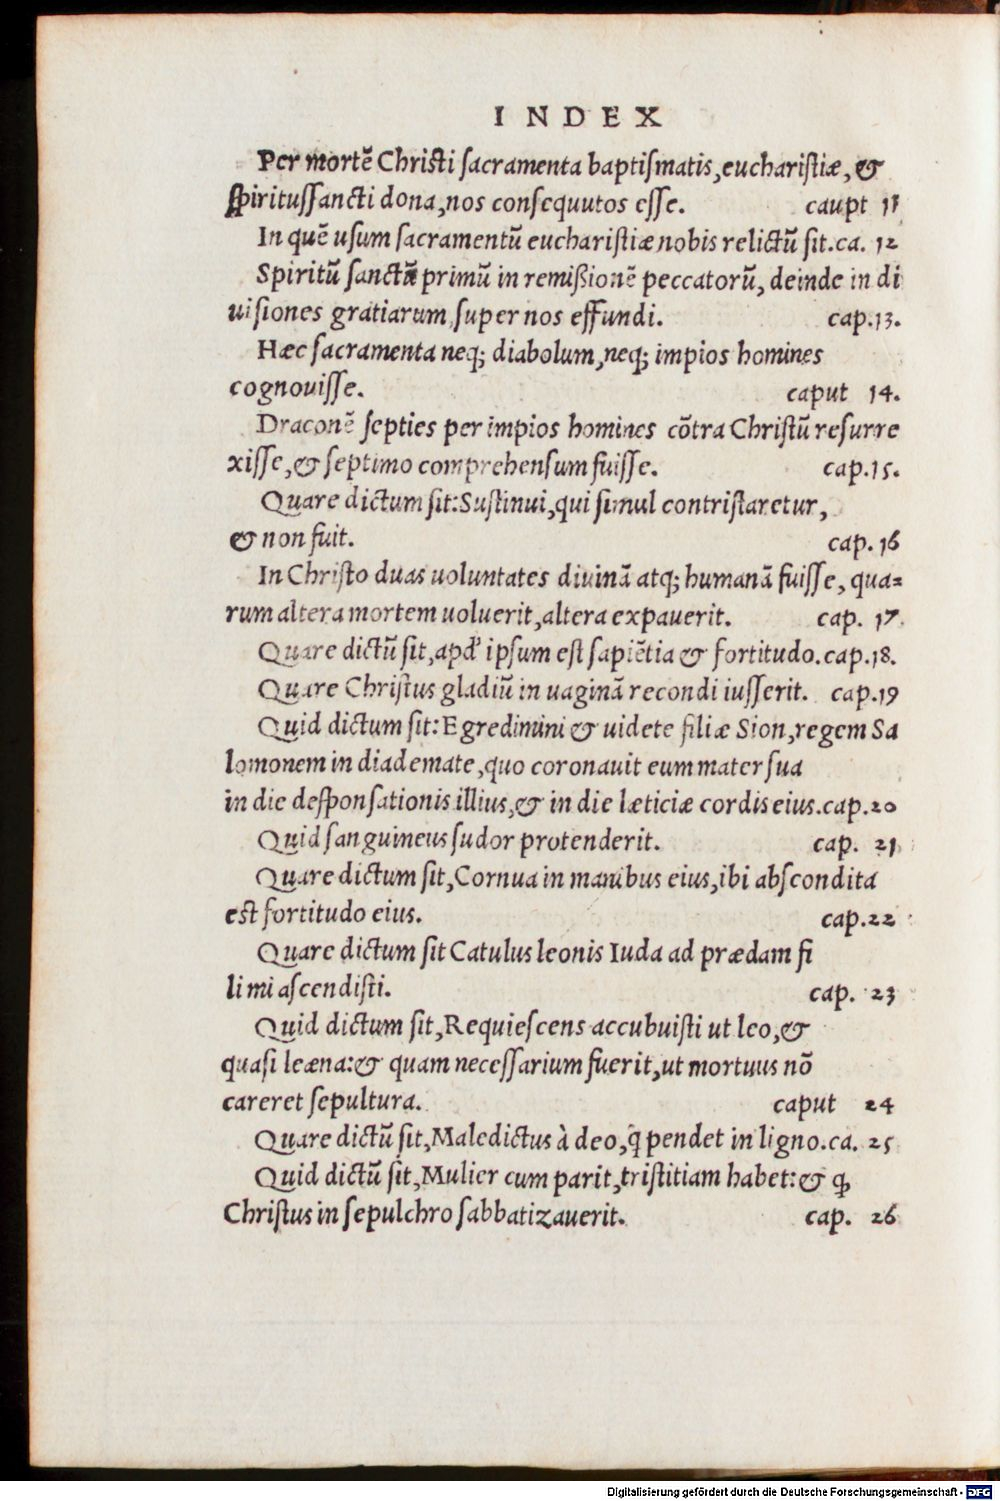 INDEX
Per mortē Christi sacramenta baptismatis, eucharistiæ, &
spiritussancti dona, nos consequutos esse. caupt 11
In quē usum sacramentū eucharistiæ nobis relictū sit. ca. 12
Spiritū sanctū primū in remißionē peccatorū, deinde in di
uisiones gratiarum super nos effundi. cap. 13.
Hæc sacramenta neq; diabolum, neq; impios homines
cognouisse. caput 14.
Draconē septies per impios homines cōtra Christū resurre
xisse, & septimo comprehensum fuisse. cap. 15.
Quare dictum sit: Sustinui, qui simul contristaretur,
& non fuit. cap. 16
In Christo duas uoluntates diuinā atq; humanā fuisse, qua=
rum altera mortem uoluerit, altera expauerit. cap. 17.
Quare dictū sit, apd' ipsum est sapiētia & fortitudo. cap. 18.
Quare Christus gladiū in uaginā recondi iusserit. cap. 19
Quid dictum sit: Egredimini & uidete filiæ Sion, regem Sa
lomonem in diademate, quo coronauit eum mater sua
in die desponsationis illius, & in die læticiæ cordis eius. cap. 20
Quid sanguineus sudor protenderit. cap. 21
Quare dictum sit, Cornua in manibus eius, ibi abscondita
est fortitudo eius. cap. 22
Quare dictum sit Catulus leonis Iuda ad prædam fi
li mi ascendisti. cap. 23
Quid dictum sit, Requiescens accubuisti ut leo, &
quasi leæna: & quam necessarium fuerit, ut mortuus nō
careret sepultura. caput 24
Quare dictū sit, Maledictus à deo, q̄ pendet in ligno. ca. 25
Quid dictū sit, Mulier cum parit, tristitiam habet: & ꝙ
Christus in sepulchro sabbatizauerit. cap. 26
Digitalisierung gefördert durch die Deutsche Forschungsgemeinschaft - DFG